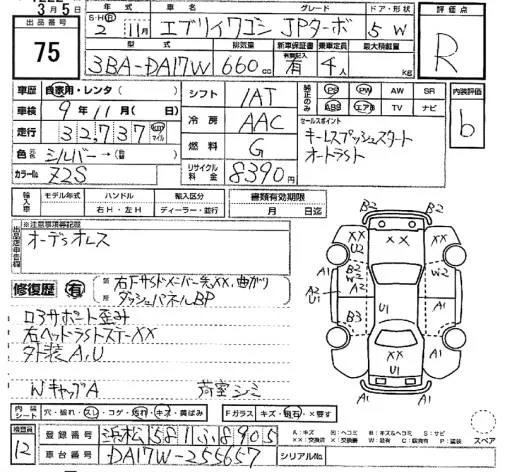 3月5日
出品番号 75
年 車名 グレード ドア・形状 評価点
S・H・R 2 11月 エブリィワゴン JPターボ 5 W R
型式 排気量 新車保証書 乗車定員 最大積載量
3BA-DA17W 660cc 有 4人 kg
車歴 自家用・レンタ( ) シフト 1AT 純正のみ PS PW AW SR 内装評価
車検 9年11月( 日) 冷房 AAC ABS エアB TV ナビ b
走行 32,737 km マイル 燃料 G セールスポイント
色 シルバー→( ) リサイクル料金 8390円 キーレスプッシュスタート
カラーNo. Z2S オートラスト
輸入車 モデル年式 ハンドル 輸入区分 書類有効期限
年 右H・左H ディーラー・並行 月 日迄
出品店申告欄 ※注意事項等記載
オーデsオレス
修復歴 有 右FサSドメンバー先XX,曲がり
ダッシュパネルBP
ロアサポート歪み
右ヘッドラSトステーXX
外装A,U
Wキャップ A 荷室シミ
B2 B2
XX U2 XX XX
A1 B2 W2 W2 A1
A2 U1 A1 U1 A1
B3
A1 XX U1 A1
内装シート 穴・破れ・スレ・コゲ・汚れ・キズ・黄ばみ Fガラス キズ・飛石・×要す
検査員 12 登録番号 浜松581ふ8905 A:キズ U:ヘコミ B:キズ&ヘコミ S:サビ スペア
XX:交換済 X:交換要 W:波有 C:腐蝕有 P:塗装
車台番号 DA17W-255657 シリアルNo.